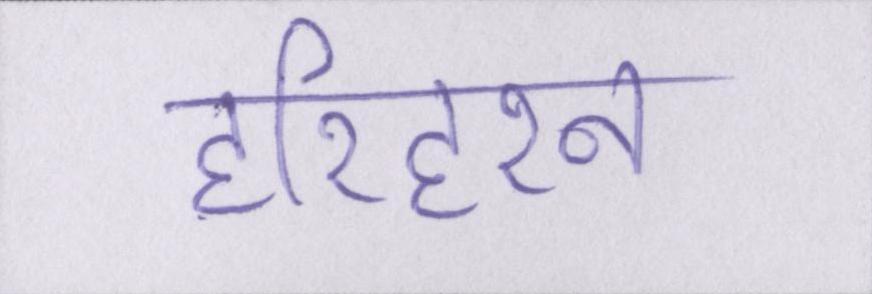 हरिहरन